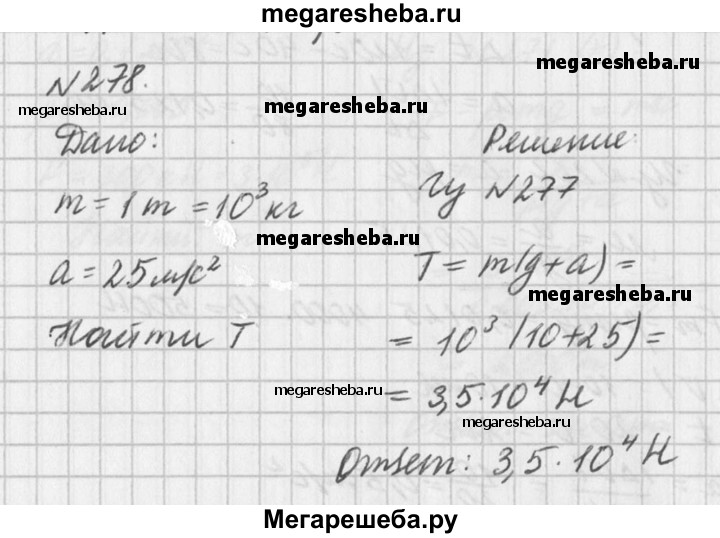 megaresheba.ru
№278.
megaresheba.ru
megaresheba.ru
megaresheba.ru
Дано:
Решение:
m = 1 т = 10³ кг
№277
megaresheba.ru
a = 25 м/с²
T = m(g+a) =
megaresheba.ru
Найти T
= 10³ (10+25) =
megaresheba.ru
= 3,5·10⁴ Н
megaresheba.ru
Ответ: 3,5·10⁴ Н
Мегарешеба.ру